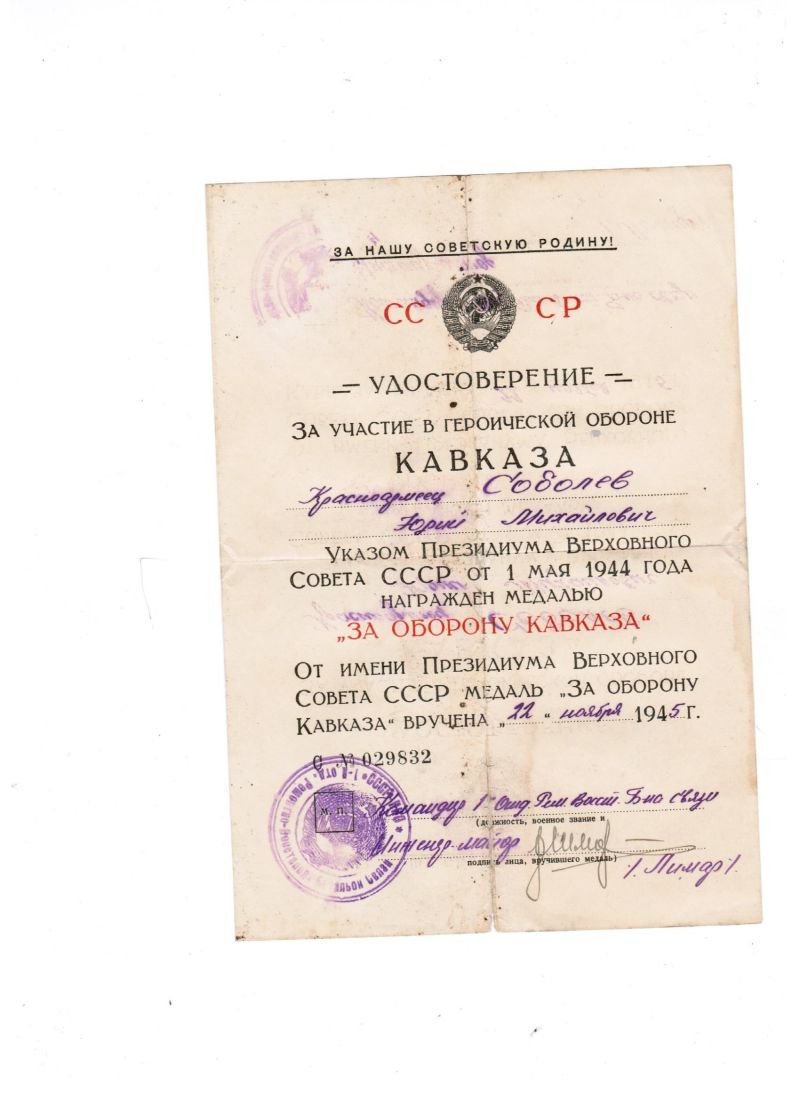 ЗА НАШУ СОВЕТСКУЮ РОДИНУ!
СС СР
УДОСТОВЕРЕНИЕ
ЗА УЧАСТИЕ В ГЕРОИЧЕСКОЙ ОБОРОНЕ
КАВКАЗА
Красноармеец Соболев
Юрий Михайлович
УКАЗОМ ПРЕЗИДИУМА ВЕРХОВНОГО
СОВЕТА СССР ОТ 1 МАЯ 1944 ГОДА
НАГРАЖДЕН МЕДАЛЬЮ
„ЗА ОБОРОНУ КАВКАЗА“
ОТ ИМЕНИ ПРЕЗИДИУМА ВЕРХОВНОГО
СОВЕТА СССР МЕДАЛЬ „ЗА ОБОРОНУ
КАВКАЗА“ ВРУЧЕНА „22“ ноября 1945 г.
С № 029832
М. П.
Командир 1 Отд. Рем. Восст. Б-на связи
(должность, военное звание и
Инженер-майор
подпись лица, вручившего медаль)
/Лимар/